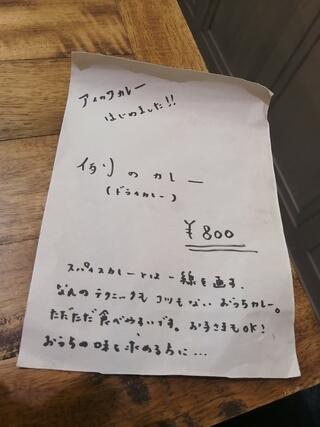 アイカワカレー
はじめました!!
例のカレー
(ドライカレー)
¥800
スパイスカレーとは一線を画す、
なんのテクニックもコツもない おうちカレー。
ただただ食べやすいです。お子さまもOK!
おうちの味を求める方に…